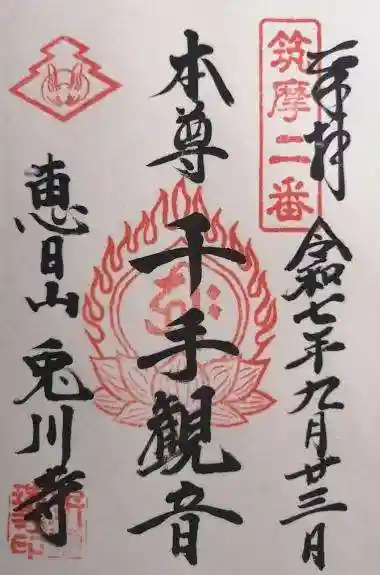 奉拝
筑摩二番
令和七年九月廿三日
本尊
千手観音
恵日山 兎川寺